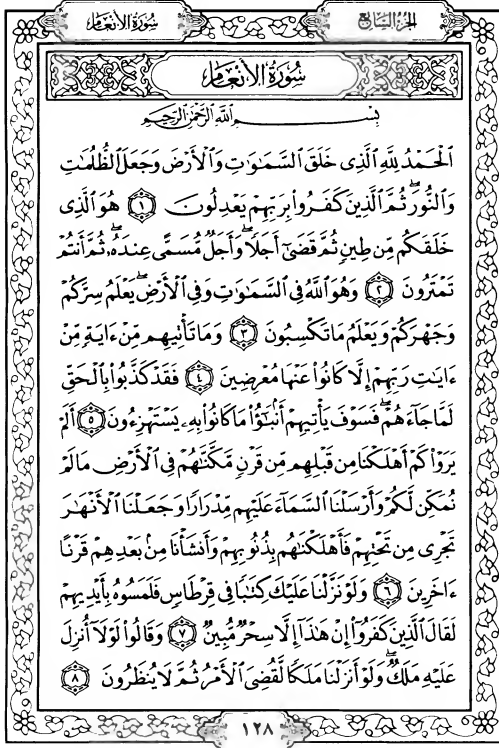 سُورَةُ الأَنْعَامِ
الجزء السَّابع
سُورَةُ الأَنْعَامِ
بِسْمِ اللَّهِ الرَّحْمَٰنِ الرَّحِيمِ
ٱلْحَمْدُ لِلَّهِ ٱلَّذِى خَلَقَ ٱلسَّمَٰوَٰتِ وَٱلْأَرْضَ وَجَعَلَ ٱلظُّلُمَٰتِ
وَٱلنُّورَۖ ثُمَّ ٱلَّذِينَ كَفَرُوا۟ بِرَبِّهِمْ يَعْدِلُونَ ١ هُوَ ٱلَّذِى
خَلَقَكُم مِّن طِينٍ ثُمَّ قَضَىٰٓ أَجَلًاۖ وَأَجَلٌ مُّسَمًّى عِندَهُۥۖ ثُمَّ أَنتُمْ
تَمْتَرُونَ ٢ وَهُوَ ٱللَّهُ فِى ٱلسَّمَٰوَٰتِ وَفِى ٱلْأَرْضِۖ يَعْلَمُ سِرَّكُمْ
وَجَهْرَكُمْ وَيَعْلَمُ مَا تَكْسِبُونَ ٣ وَمَا تَأْتِيهِم مِّنْ ءَايَةٍ مِّنْ
ءَايَٰتِ رَبِّهِمْ إِلَّا كَانُوا۟ عَنْهَا مُعْرِضِينَ ٤ فَقَدْ كَذَّبُوا۟ بِٱلْحَقِّ
لَمَّا جَآءَهُمْۖ فَسَوْفَ يَأْتِيهِمْ أَنۢبَٰٓؤُا۟ مَا كَانُوا۟ بِهِۦ يَسْتَهْزِءُونَ ٥ أَلَمْ
يَرَوْا۟ كَمْ أَهْلَكْنَا مِن قَبْلِهِم مِّن قَرْنٍ مَّكَّنَّٰهُمْ فِى ٱلْأَرْضِ مَا لَمْ
نُمَكِّن لَّكُمْ وَأَرْسَلْنَا ٱلسَّمَآءَ عَلَيْهِم مِّدْرَارًا وَجَعَلْنَا ٱلْأَنْهَٰرَ
تَجْرِى مِن تَحْتِهِمْ فَأَهْلَكْنَٰهُم بِذُنُوبِهِمْ وَأَنشَأْنَا مِنۢ بَعْدِهِمْ قَرْنًا
ءَاخَرِينَ ٦ وَلَوْ نَزَّلْنَا عَلَيْكَ كِتَٰبًا فِى قِرْطَاسٍ فَلَمَسُوهُ بِأَيْدِيهِمْ
لَقَالَ ٱلَّذِينَ كَفَرُوٓا۟ إِنْ هَٰذَآ إِلَّا سِحْرٌ مُّبِينٌ ٧ وَقَالُوا۟ لَوْلَآ أُنزِلَ
عَلَيْهِ مَلَكٌۖ وَلَوْ أَنزَلْنَا مَلَكًا لَّقُضِىَ ٱلْأَمْرُ ثُمَّ لَا يُنظَرُونَ ٨
١٢٨